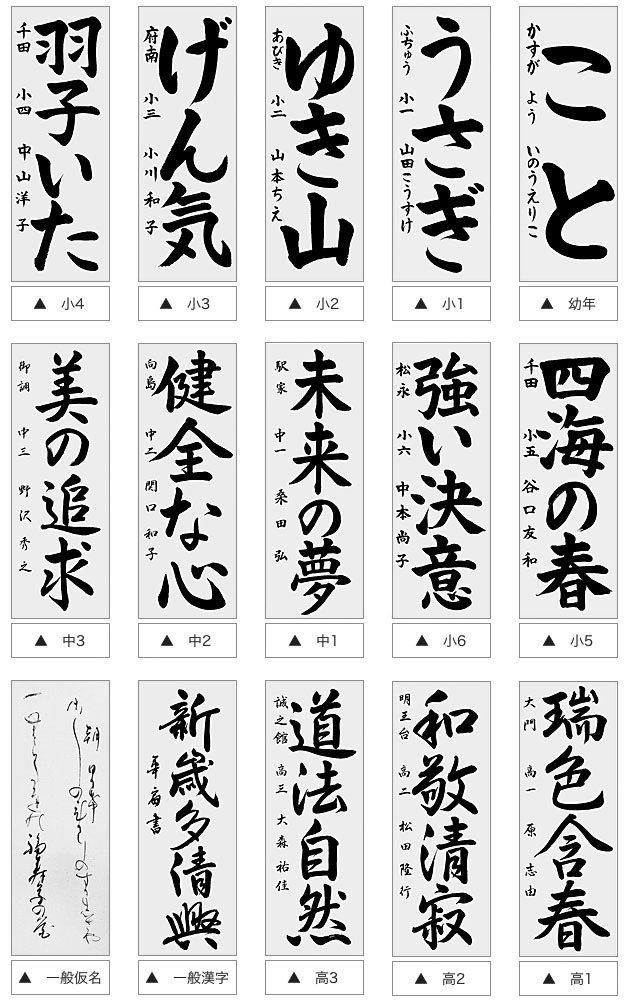 こと
かすが よう いのうえりこ
▲ 幼年
うさぎ
ふちゅう 小一 山田こうすけ
▲ 小1
ゆき山
あびき 小二 山本ちえ
▲ 小2
げん気
府南 小三 小川和子
▲ 小3
羽子いた
千田 小四 中山洋子
▲ 小4
四海の春
千田 小五 谷口友和
▲ 小5
強い決意
松永 小六 中本尚子
▲ 小6
未来の夢
駅家 中一 桑田弘
▲ 中1
健全な心
向島 中二 関口和子
▲ 中2
美の追求
御調 中三 野沢秀之
▲ 中3
瑞色含春
大門 高一 原志由
▲ 高1
和敬清寂
明王台 高二 松田隆行
▲ 高2
道法自然
誠之館 高三 大森祐佳
▲ 高3
新歳多清興
書
▲ 一般漢字
▲ 一般仮名